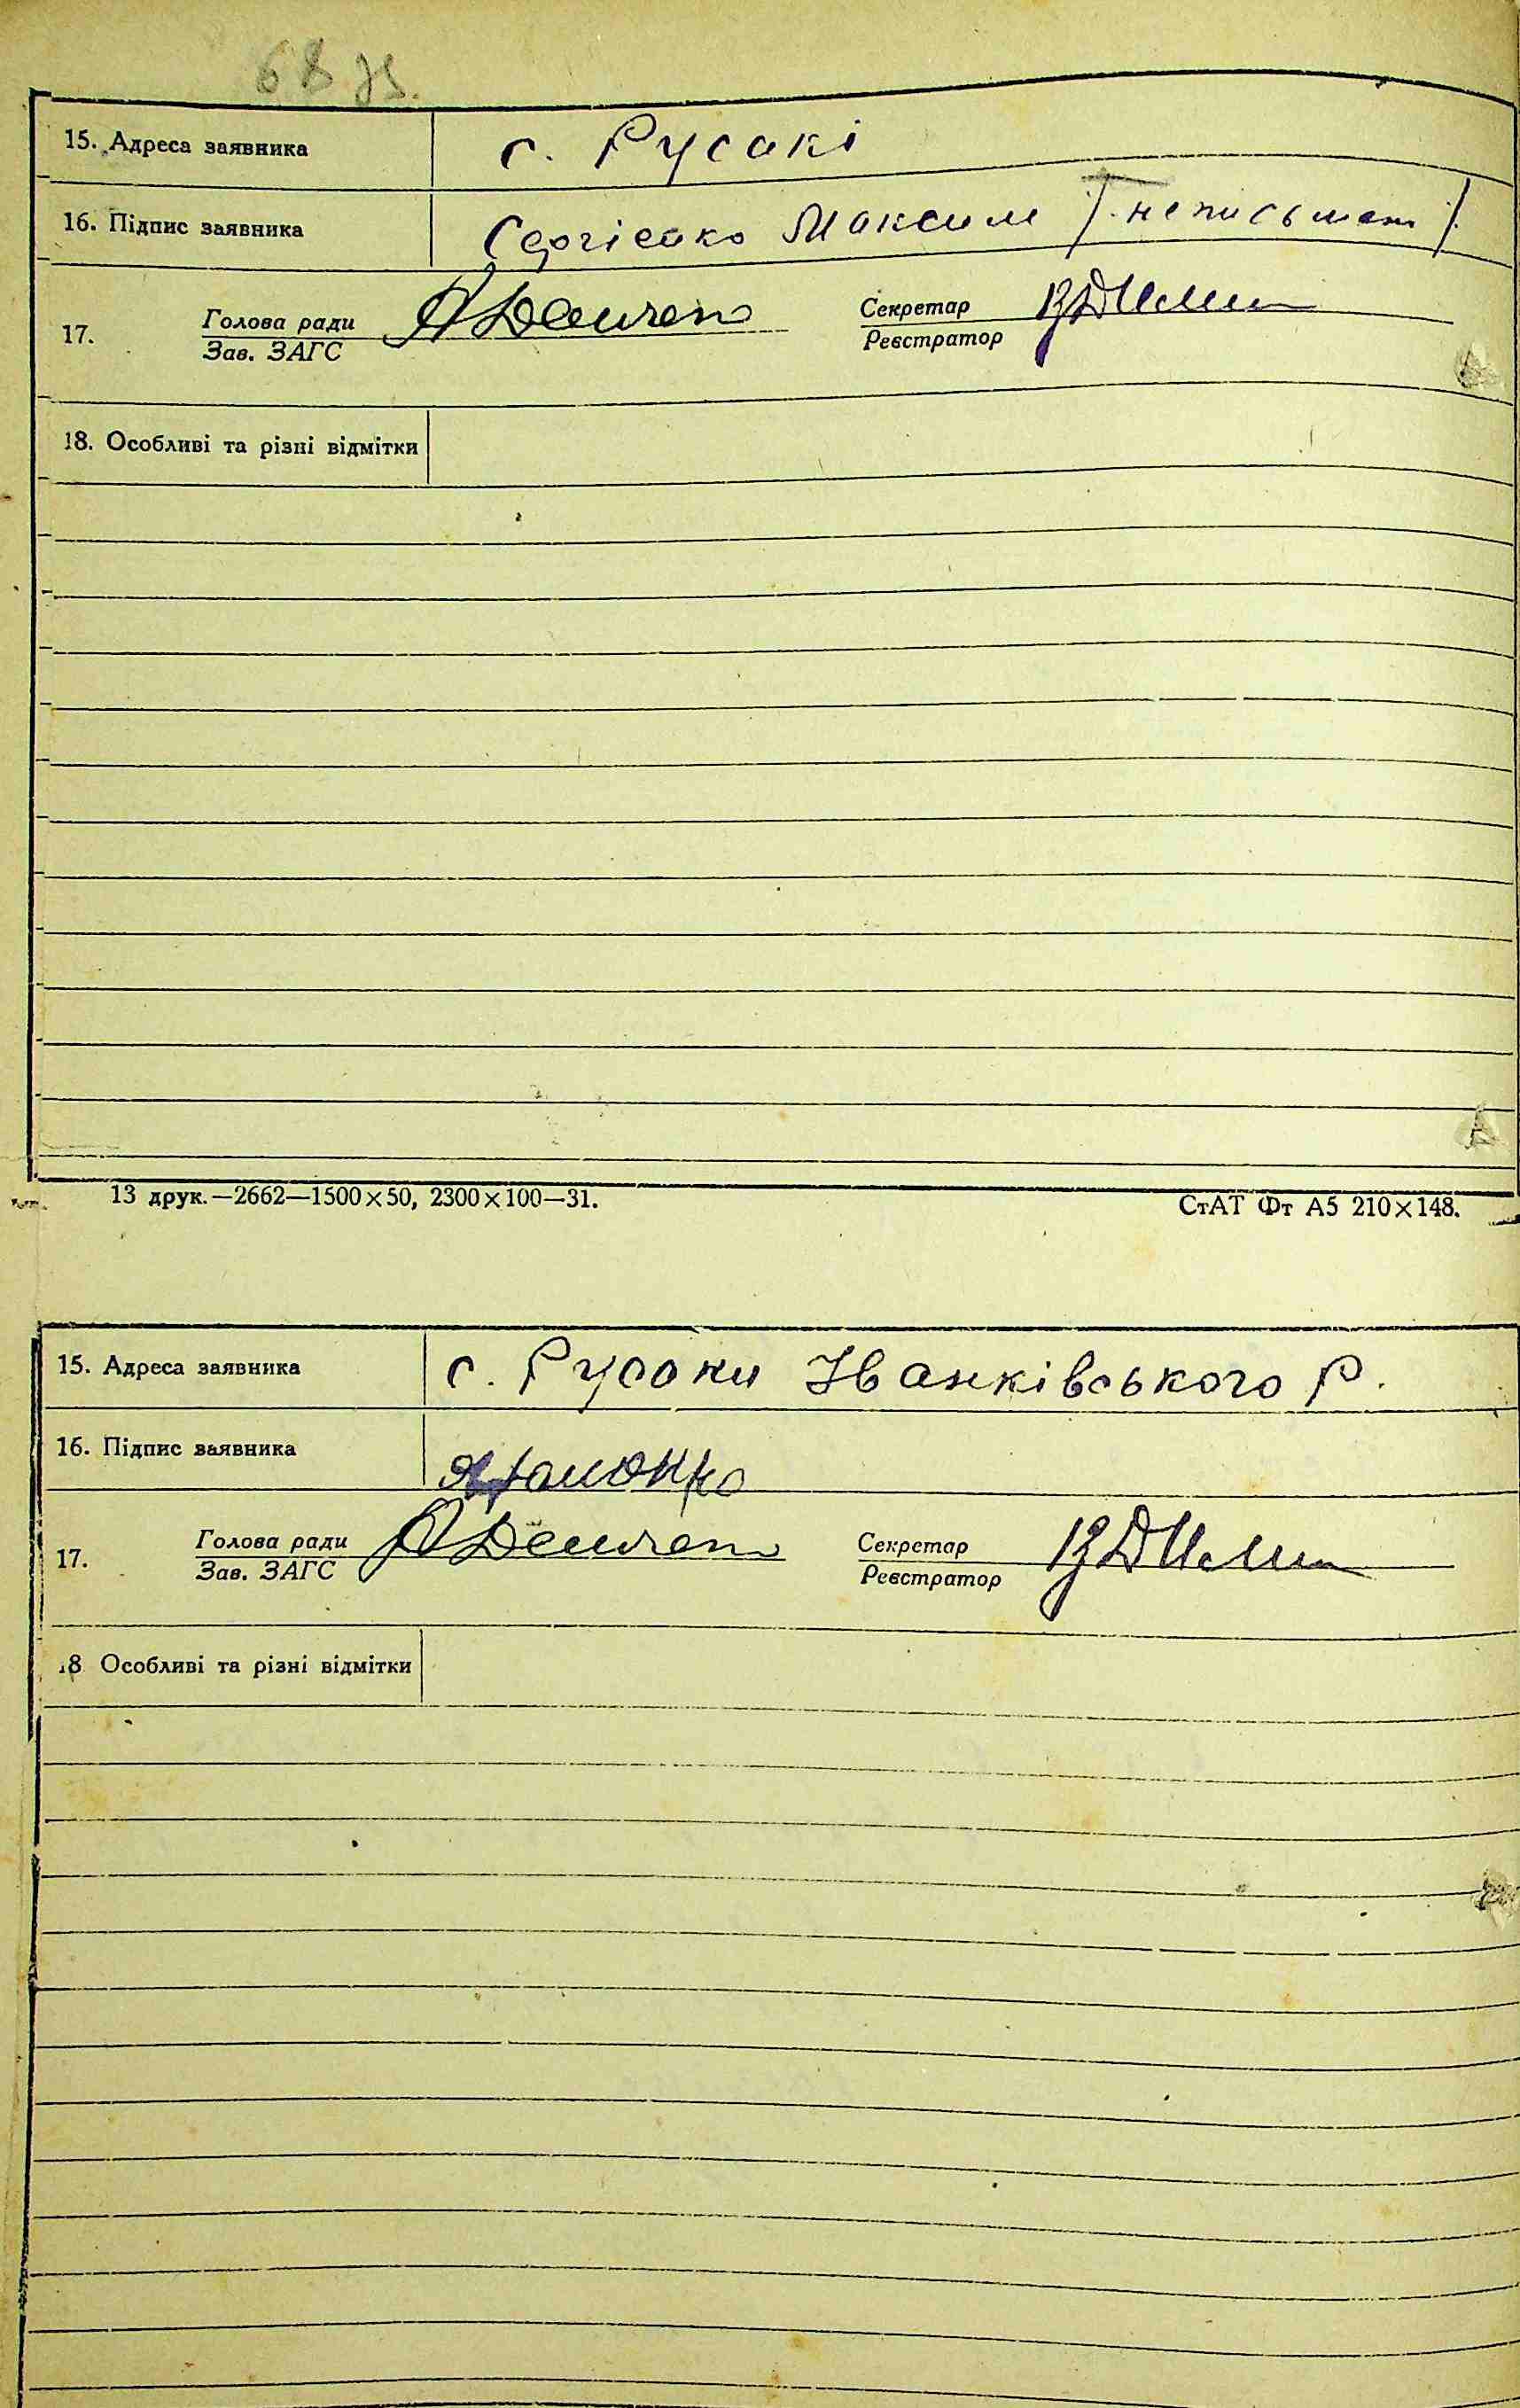 68 зв.
15. Адреса заявника с. Русакі
16. Підпис заявника Сергієнко Максим /. неписьмен /.
17. Голова ради Секретар
Зав. ЗАГС Реєстратор
18. Особливі та різні відмітки
13 друк.—2662—1500×50, 2300×100—31. СтАТ Фт А5 210×148.
15. Адреса заявника с. Русаки Іванківського Р.
16. Підпис заявника
17. Голова ради Секретар
Зав. ЗАГС Реєстратор
18 Особливі та різні відмітки